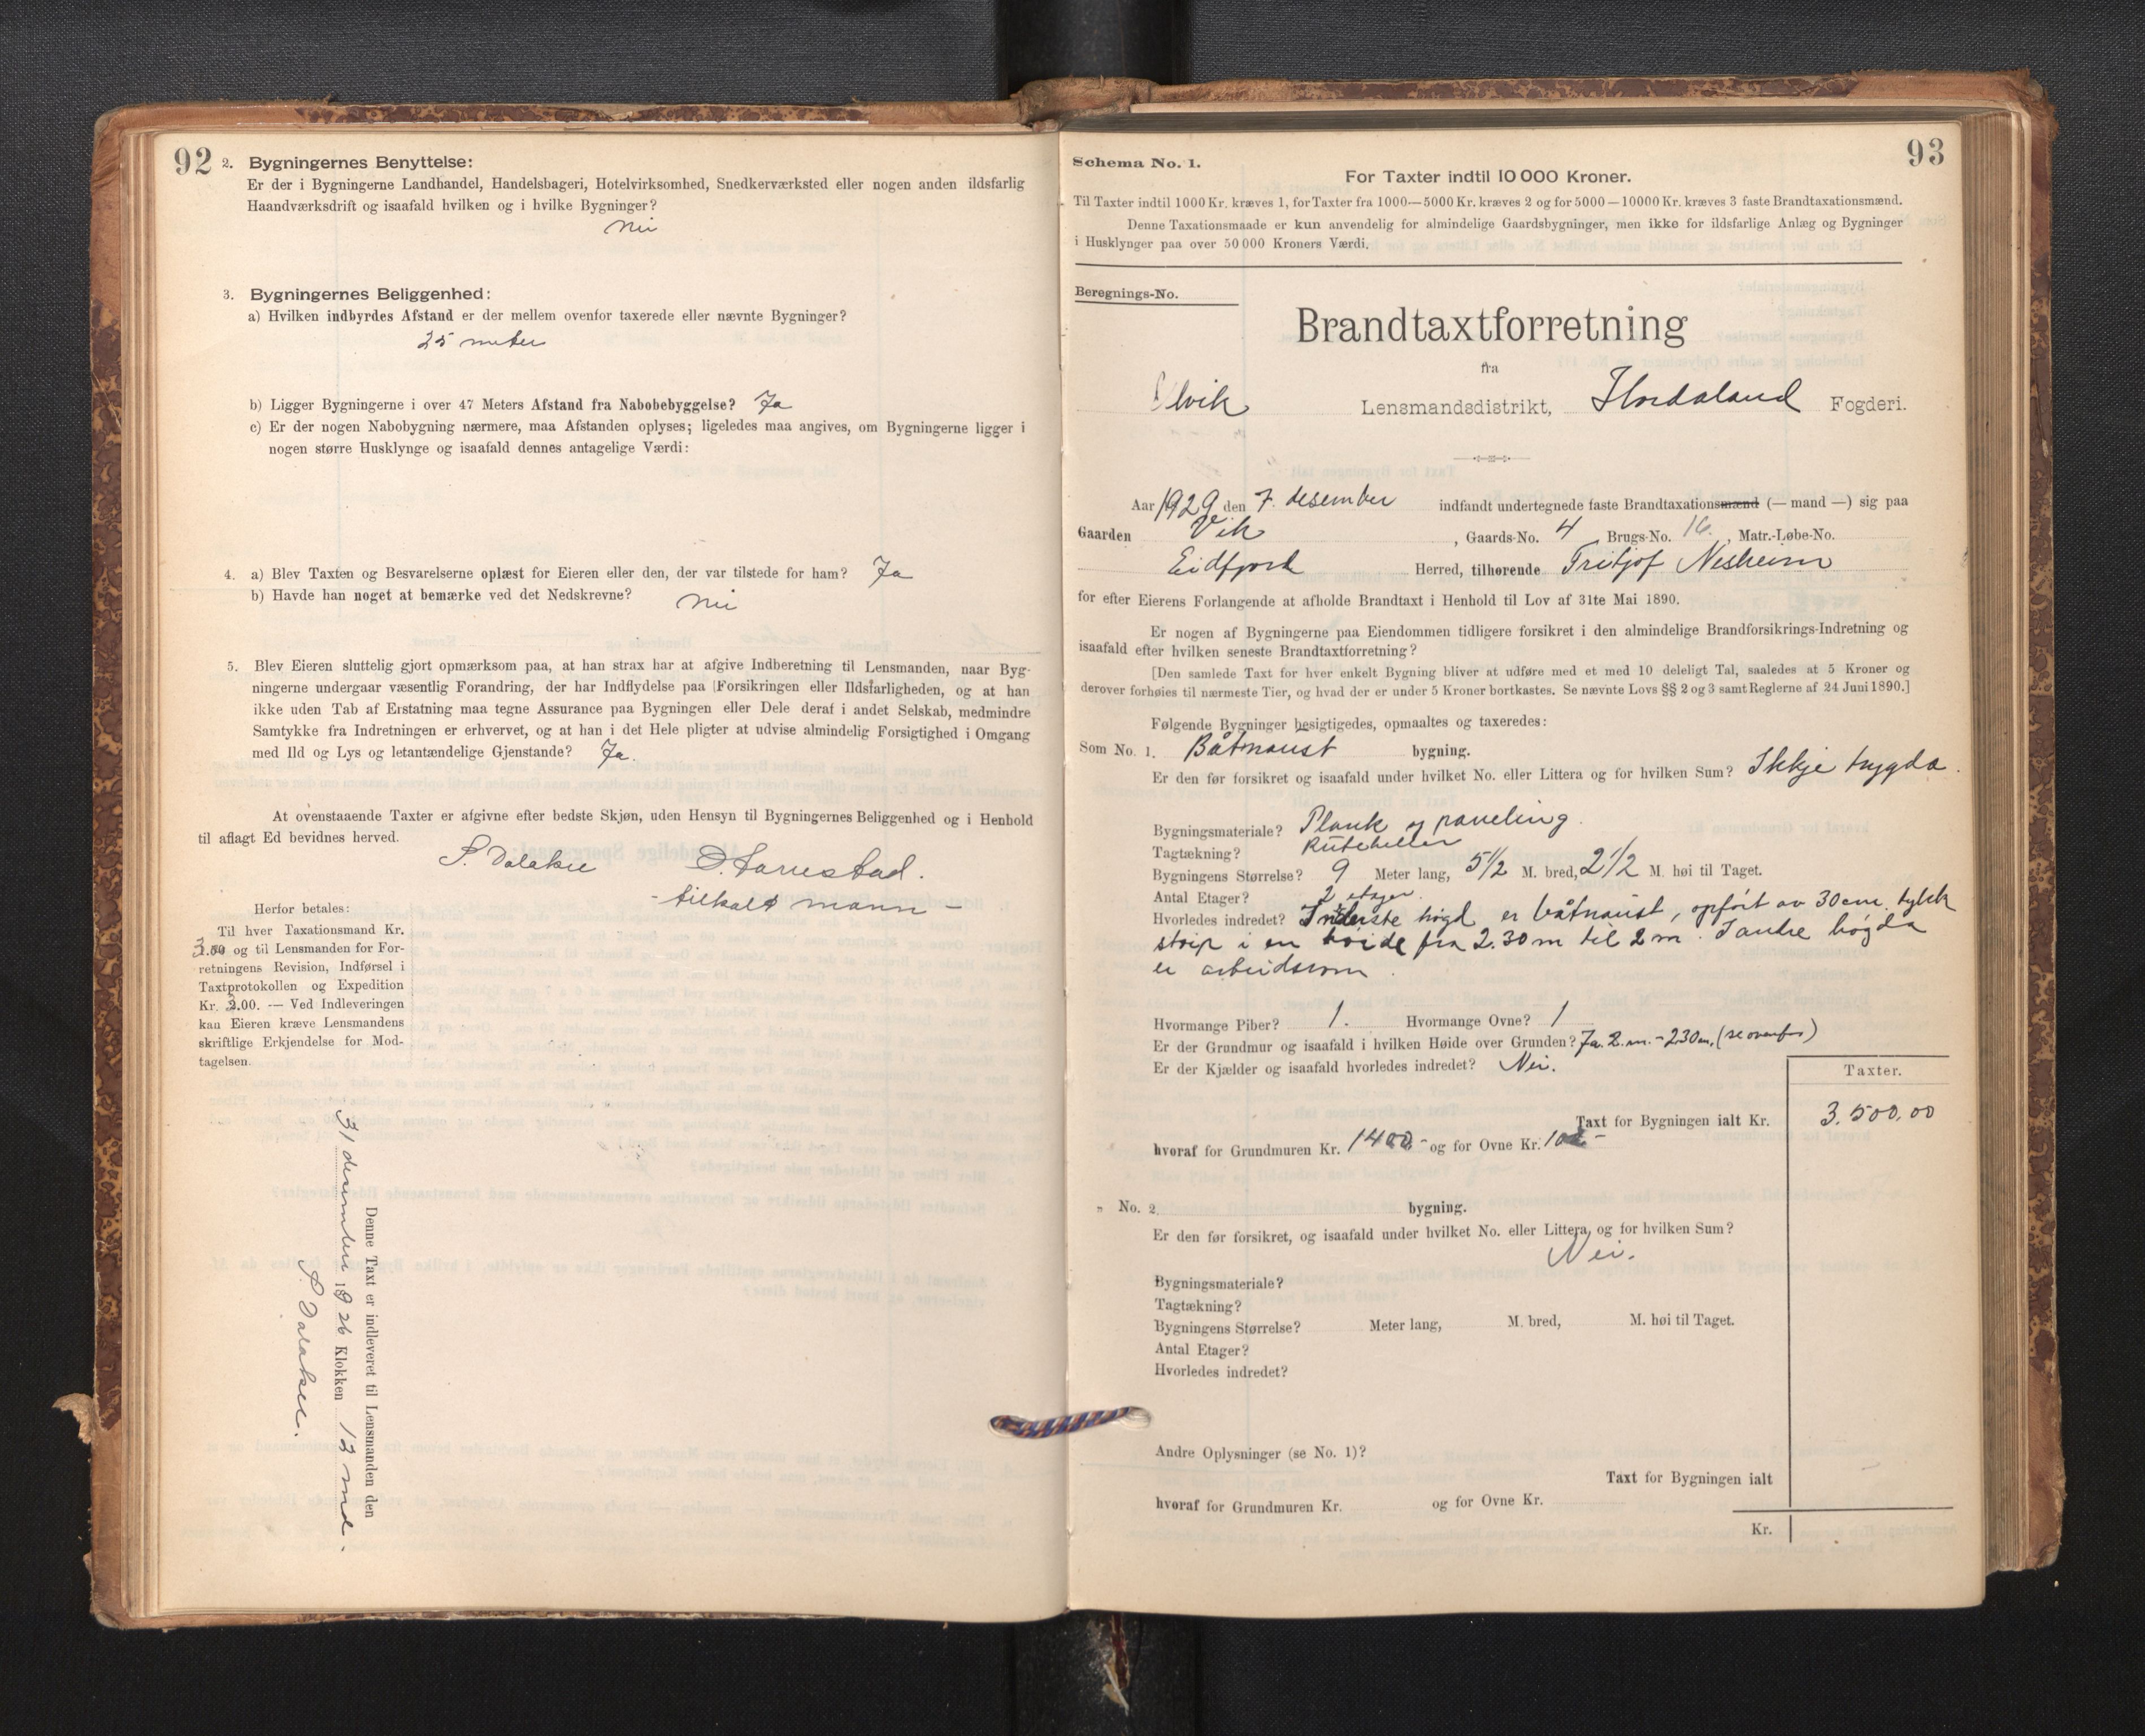 92
2. Bygningernes Benyttelse:
Er der i Bygningerne Landhandel, Handelsbageri, Hotelvirksomhed, Snedkerværksted eller nogen anden ildsfarlig
Haandværksdrift og isaafald hvilken og i hvilke Bygninger?
Nei
3. Bygningernes Beliggenhed:
a) Hvilken indbyrdes Afstand er der mellem ovenfor taxerede eller nævnte Bygninger?
25 meter
b) Ligger Bygningerne i over 47 Meters Afstand fra Nabobebyggelse? Ja
c) Er der nogen Nabobygning nærmere, maa Afstanden oplyses; ligeledes maa angives, om Bygningerne ligger i
nogen større Husklynge og isaafald dennes antagelige Værdi:
4. a) Blev Taxten og Besvarelserne oplæst for Eieren eller den, der var tilstede for ham? Ja
b) Havde han noget at bemærke ved det Nedskrevne? Nei
5. Blev Eieren sluttelig gjort opmærksom paa, at han strax har at afgive Indberetning til Lensmanden, naar Byg-
ningerne undergaar væsentlig Forandring, der har Indflydelse paa Forsikringen eller Ildsfarligheden, og at han
ikke uden Tab af Erstatning maa tegne Assurance paa Bygningen eller Dele deraf i andet Selskab, medmindre
Samtykke fra Indretningen er erhvervet, og at han i det Hele pligter at udvise almindelig Forsigtighed i Omgang
med Ild og Lys og letantændelige Gjenstande? Ja.
At ovenstaaende Taxter er afgivne efter bedste Skjøn, uden Hensyn til Bygningernes Beliggenhed og i Henhold
til aflagt Ed bevidnes herved.
S. Dalaker
- tilkalt mann -
Herfor betales:
Til hver Taxationsmand Kr.
og til Lensmanden for For-
retningens Revision, Indførsel i
Taxtprotokollen og Expedition
Kr. 2.00. — Ved Indleveringen
kan Eieren kræve Lensmandens
skriftlige Erkjendelse for Mod-
tagelsen.
Denne Taxt er indleveret til Lensmanden den
31 desember 1926 Klokken 12 md.
S Dalaker.
93
Schema No. 1.
For Taxter indtil 10 000 Kroner.
Til Taxter indtil 1000 Kr. kræves 1, for Taxter fra 1000—5000 Kr. kræves 2 og for 5000—10000 Kr. kræves 3 faste Brandtaxationsmænd.
Denne Taxationsmaade er kun anvendelig for almindelige Gaardsbygninger, men ikke for ildsfarlige Anlæg og Bygninger
i Husklynger paa over 50 000 Kroners Værdi.
Beregnings-No.
Brandtaxtforretning
fra
Ulvik Lensmandsdistrikt, Hordaland Fogderi.
Aar 1929 den 7. desember indfandt undertegnede faste Brandtaxationsmænd (— mand —) sig paa
Gaarden Vik, Gaards-No. 4 Brugs-No. 16., Matr.-Løbe-No.
Eidfjord Herred, tilhørende Fritjof Nesheim
for efter Eierens Forlangende at afholde Brandtaxt i Henhold til Lov af 31te Mai 1890.
Er nogen af Bygningerne paa Eiendommen tidligere forsikret i den almindelige Brandforsikrings-Indretning og
isaafald efter hvilken seneste Brandtaxtforretning?
[Den samlede Taxt for hver enkelt Bygning bliver at udføre med et med 10 deleligt Tal, saaledes at 5 Kroner og
derover forhøies til nærmeste Tier, og hvad der er under 5 Kroner bortkastes. Se nævnte Lovs §§ 2 og 3 samt Reglerne af 24 Juni 1890.]
Følgende Bygninger besigtigedes, opmaaltes og taxeredes:
Som No. 1. Båtnaust bygning.
Er den før forsikret og isaafald under hvilket No. eller Littera og for hvilken Sum? Ikkje trygda.
Bygningsmateriale? Plank og paneling.
Tagtækning? Ruteheller
Bygningens Størrelse? 9 Meter lang, 5 1/2 M. bred, 2 1/2 M. høi til Taget.
Antal Etager? 2 etager.
Hvorledes indredet? Inderste høgd er båtnaust, opført av 30 cm. tykk
støip i en høide fra 2.30 m til 2 m. I andre høgda
er arbeidsrom
Hvormange Piber? 1. Hvormange Ovne? 1
Er der Grundmur og isaafald i hvilken Høide over Grunden? Ja. 2. m. - 2.30 m, (se ovenfor)
Er der Kjælder og isaafald hvorledes indredet? Nei.
Taxter.
Taxt for Bygningen ialt Kr. 3.500,00
hvoraf for Grundmuren Kr. 1400- og for Ovne Kr. 100-
" No. 2 bygning.
Er den før forsikret, og isaafald under hvilket No. eller Littera, og for hvilken Sum?
Nei.
Bygningsmateriale?
Tagtækning?
Bygningens Størrelse? Meter lang, M. bred, M. høi til Taget.
Antal Etager?
Hvorledes indredet?
Andre Oplysninger (se No. 1)?
Taxt for Bygningen ialt
hvoraf for Grundmuren Kr. og for Ovne Kr.
Kr.